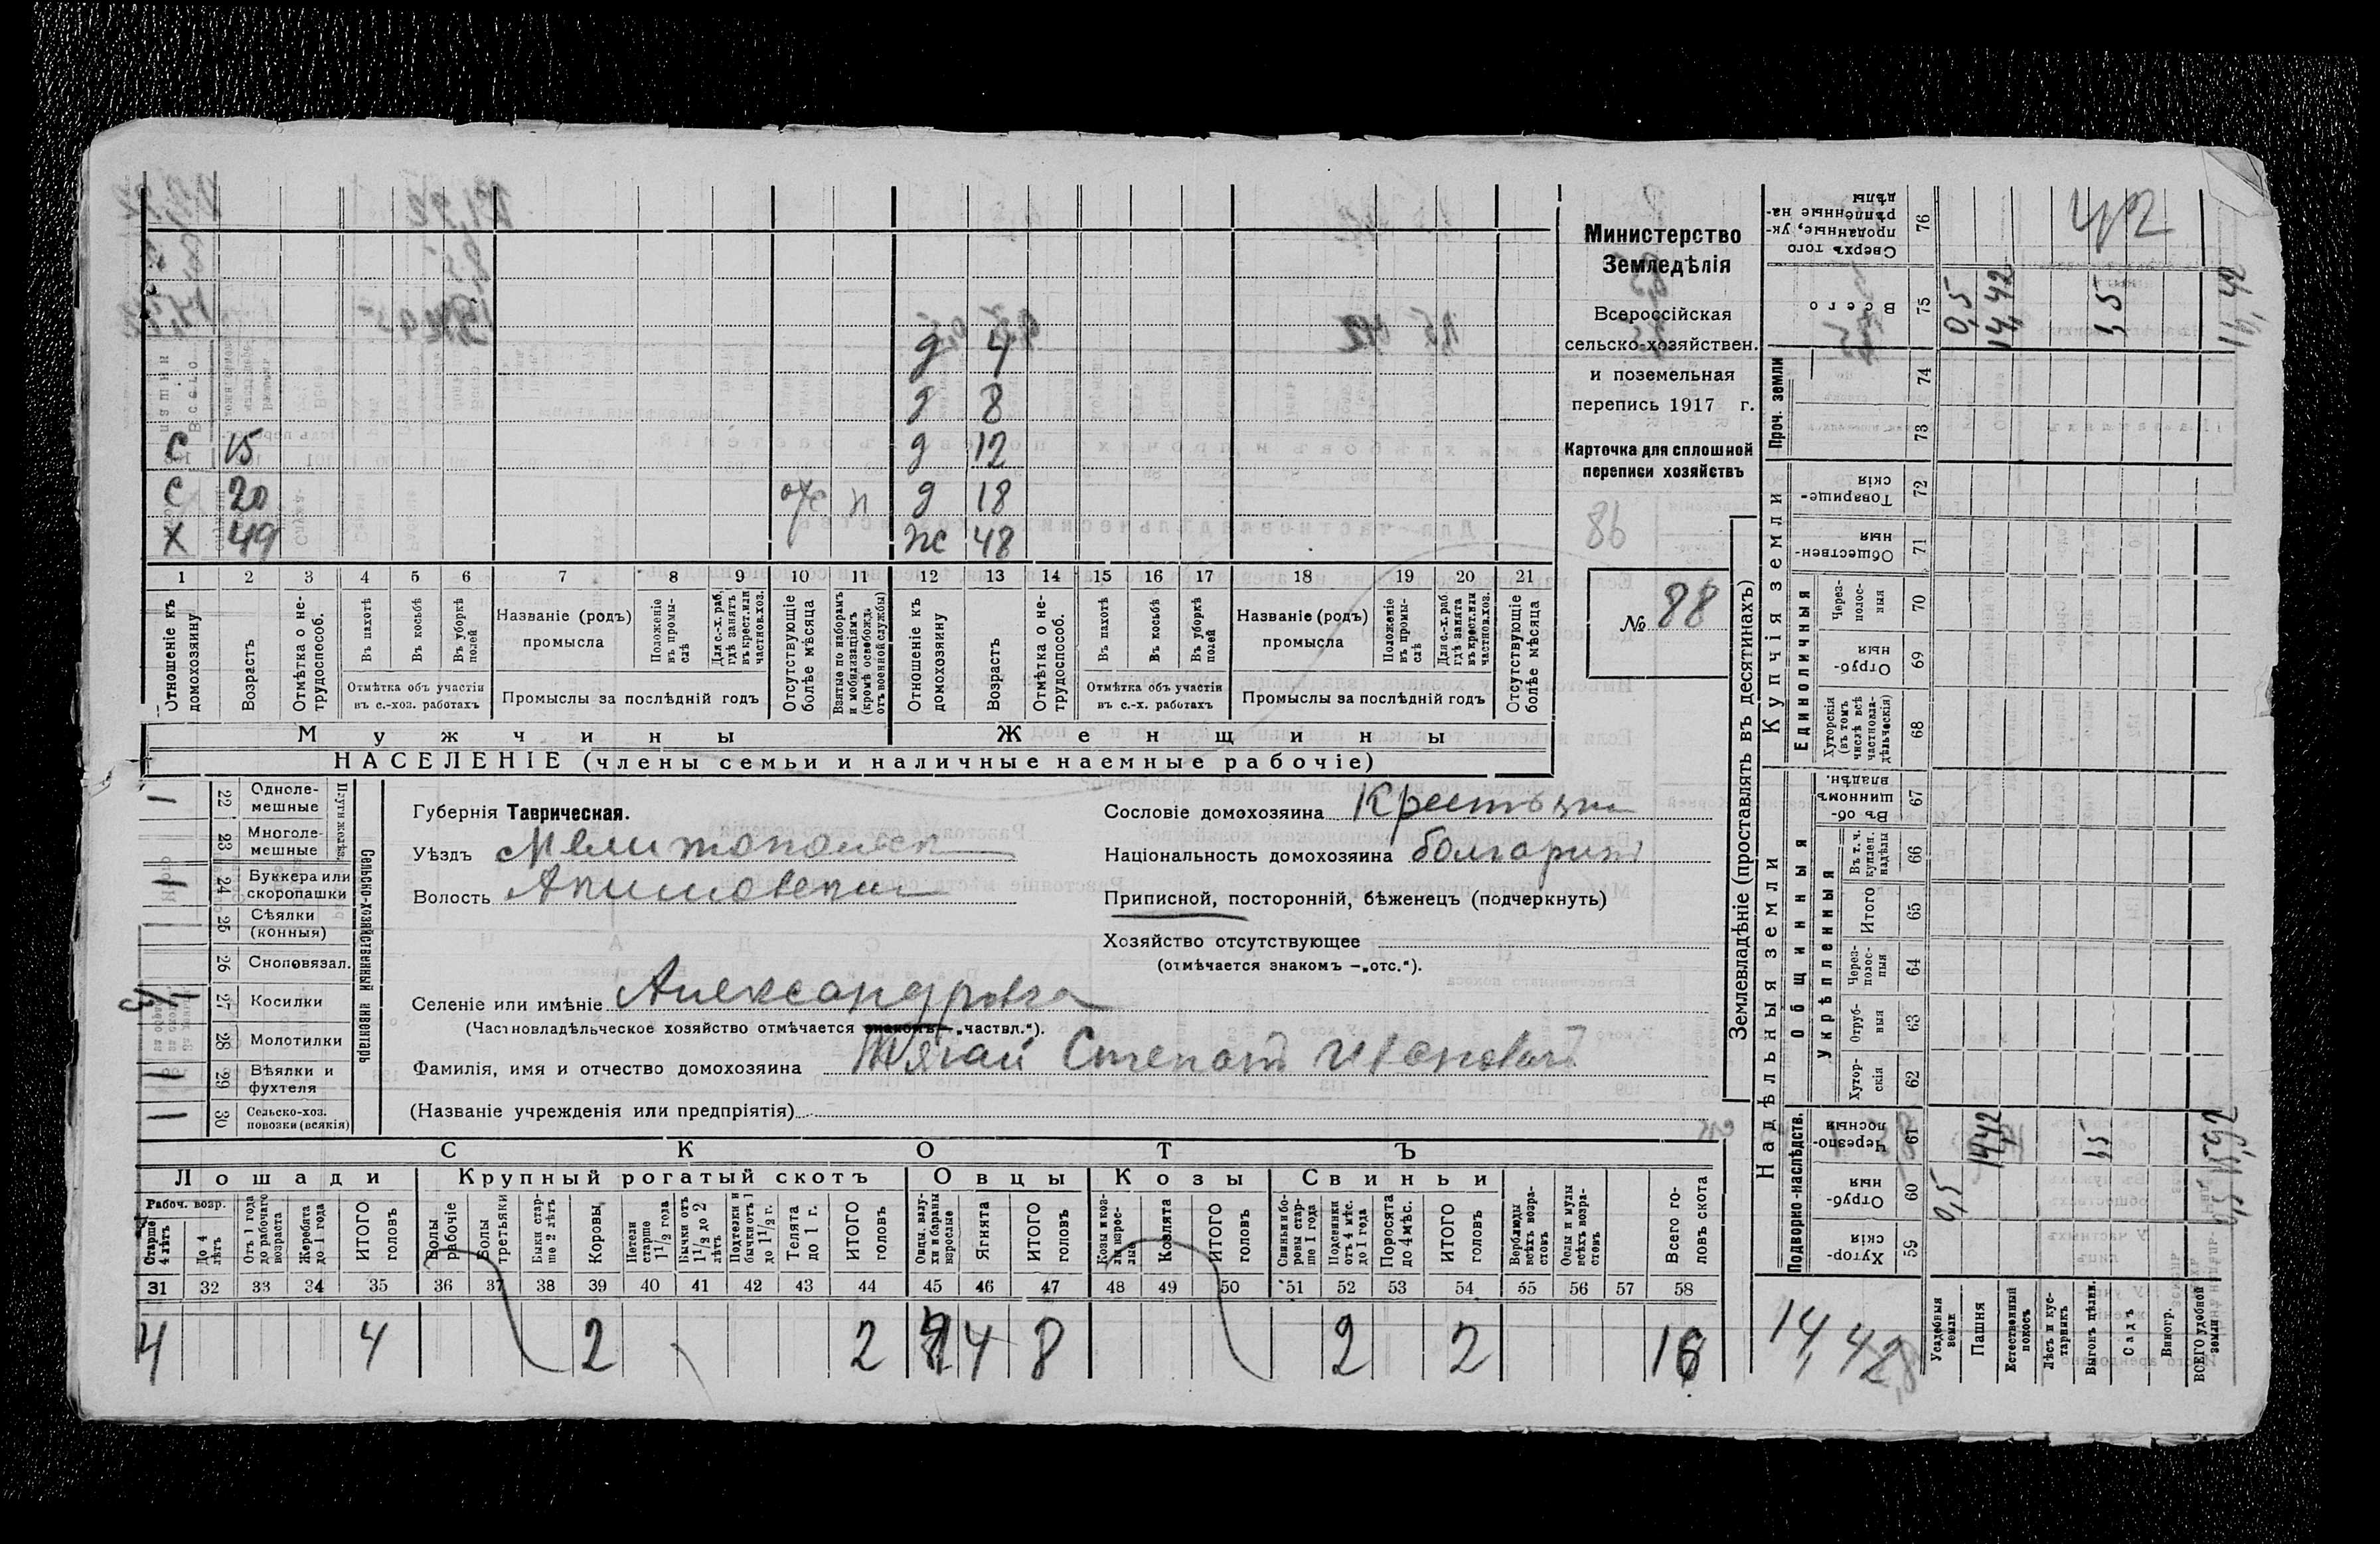 Министерство
Земледѣлія
Всероссійская
сельско-хозяйствен.
и поземельная
перепись 1917 г.
Карточка для сплошной
переписи хозяйствъ
86
№ 88
д 4
д 8
С 15 д 12
С 20 отс п д 18
Х 49 ж 48
1 2 3 4 5 6 7 8 9 10 11 12 13 14 15 16 17 18 19 20 21
Отношеніе къ домохозяину
Возрастъ
Отмѣтка о нетрудоспособ.
Въ пахотѣ
Въ косьбѣ
Въ уборкѣ полей
Отмѣтка объ участіи въ с.-хоз. работахъ
Названіе (родъ) промысла
Положеніе въ промыслѣ
Для с.-х. раб. гдѣ занятъ въ крест. или частнов. хоз.
Промыслы за послѣдній годъ
Отсутствующіе болѣе мѣсяца
Взятые по наборамъ и мобилизаціямъ (кромѣ освобожд. отъ военной службы)
Отношеніе къ домохозяину
Возрастъ
Отмѣтка о нетрудоспособ.
Въ пахотѣ
Въ косьбѣ
Въ уборкѣ полей
Отмѣтка объ участіи въ с.-х. работахъ
Названіе (родъ) промысла
Положеніе въ промыслѣ
Для с.-х. раб. гдѣ занята въ крест. или частнов. хоз.
Промыслы за послѣдній годъ
Отсутствующіе болѣе мѣсяца
Мужчины Женщины
НАСЕЛЕНІЕ (члены семьи и наличные наемные рабочіе)
Сельско-хозяйственный инвентарь
1 22 Однолемешные
23 Многолемешные
1 24 Буккера или скоропашки
25 Сѣялки (конныя)
26 Сноповязал.
27 Косилки
28 Молотилки
1 29 Вѣялки и фухтеля
1 30 Сельско-хоз. повозки (всякія)
Губернія Таврическая.
Уѣздъ Мелитопольск
Волость Акимовская
Сословіе домохозяина Крестьянин
Національность домохозяина болгаринъ
Приписной, посторонній, бѣженецъ (подчеркнуть)
Хозяйство отсутствующее
(отмѣчается знакомъ —„отс.“).
Селеніе или имѣніе Александровка
(Частновладѣльческое хозяйство отмѣчается знакомъ— „частвл.“).
Фамилія, имя и отчество домохозяина Тягай Степанъ Ивановичъ
(Названіе учрежденія или предпріятія)
СКОТЪ
Лошади Крупный рогатый скотъ Овцы Козы Свиньи
Рабоч. возр.
Старше 4 лѣтъ
До 4 лѣтъ
Отъ 1 года до рабочаго возраста
Жеребята до 1 года
ИТОГО головъ
Волы рабочіе
Волы третьяки
Быки старше 2 лѣтъ
Коровы
Нетели старше 1 1/2 года
Бычки отъ 1 1/2 до 2 лѣтъ
Подтелки и бычки отъ 1 до 1 1/2 г.
Телята до 1 г.
ИТОГО головъ
Овцы, валухи и бараны взрослые
Ягнята
ИТОГО головъ
Козы и козлы взрослые
Козлята
ИТОГО головъ
Свиньи и боровы старше 1 года
Подсвинки отъ 4 мѣс. до 1 года
Поросята до 4 мѣс.
ИТОГО головъ
Верблюды всѣхъ возрастовъ
Ослы и мулы всѣхъ возрастовъ
Всего головъ скота
31 32 33 34 35 36 37 38 39 40 41 42 43 44 45 46 47 48 49 50 51 52 53 54 55 56 57 58
4 4 2 2 4 4 8 2 2 16
Землевладѣніе (проставлять въ десятинахъ)
Надѣльныя земли Купчія земли Проч. земли
Подворно-наслѣдств.
Общинныя
Укрѣпленныя
Единоличныя
Сверхъ того проданные, укрѣпленные надѣлы 76
Всего 75 0,5 14,42 1,5 16,42
74
73
Товарищескія 72
Общественныя 71
Черезполосныя 70
Отрубныя 69
Хуторскія (въ томъ числѣ всѣ частновладѣльческія) 68
Въ общинномъ владѣн. 67
Въ т. ч. куплен. надѣлы 66
Итого 65
Черезполосныя 64
Отрубныя 63
Хуторскія 62
Черезполосныя 61 14,42 1,5
Отрубныя 60 0,5
Хуторскія 59
Усадебныя земли
Пашня
Естественный покосъ
Лѣсъ и кустарникъ
Выгонъ цѣлин.
Садъ
Виногр.
ВСЕГО удобной земли
14,42